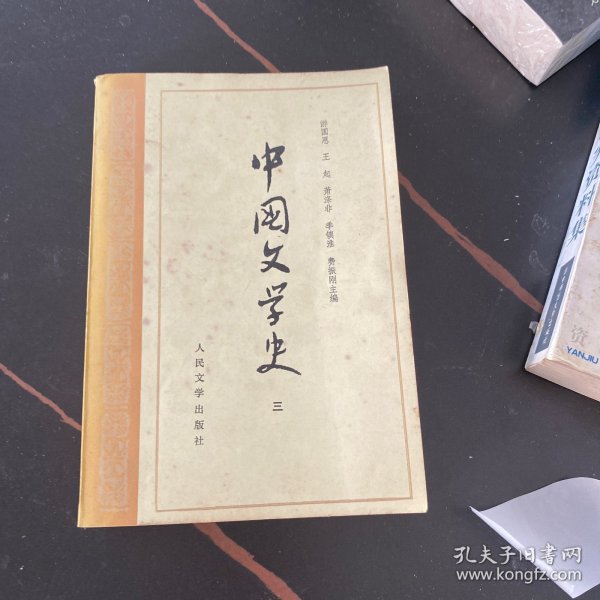 游国恩 王起 萧涤非 季镇淮 费振刚主编
中国文学史
三
人民文学出版社
资料集
资
YANJIU
孔夫子旧书网
www.kongfz.com